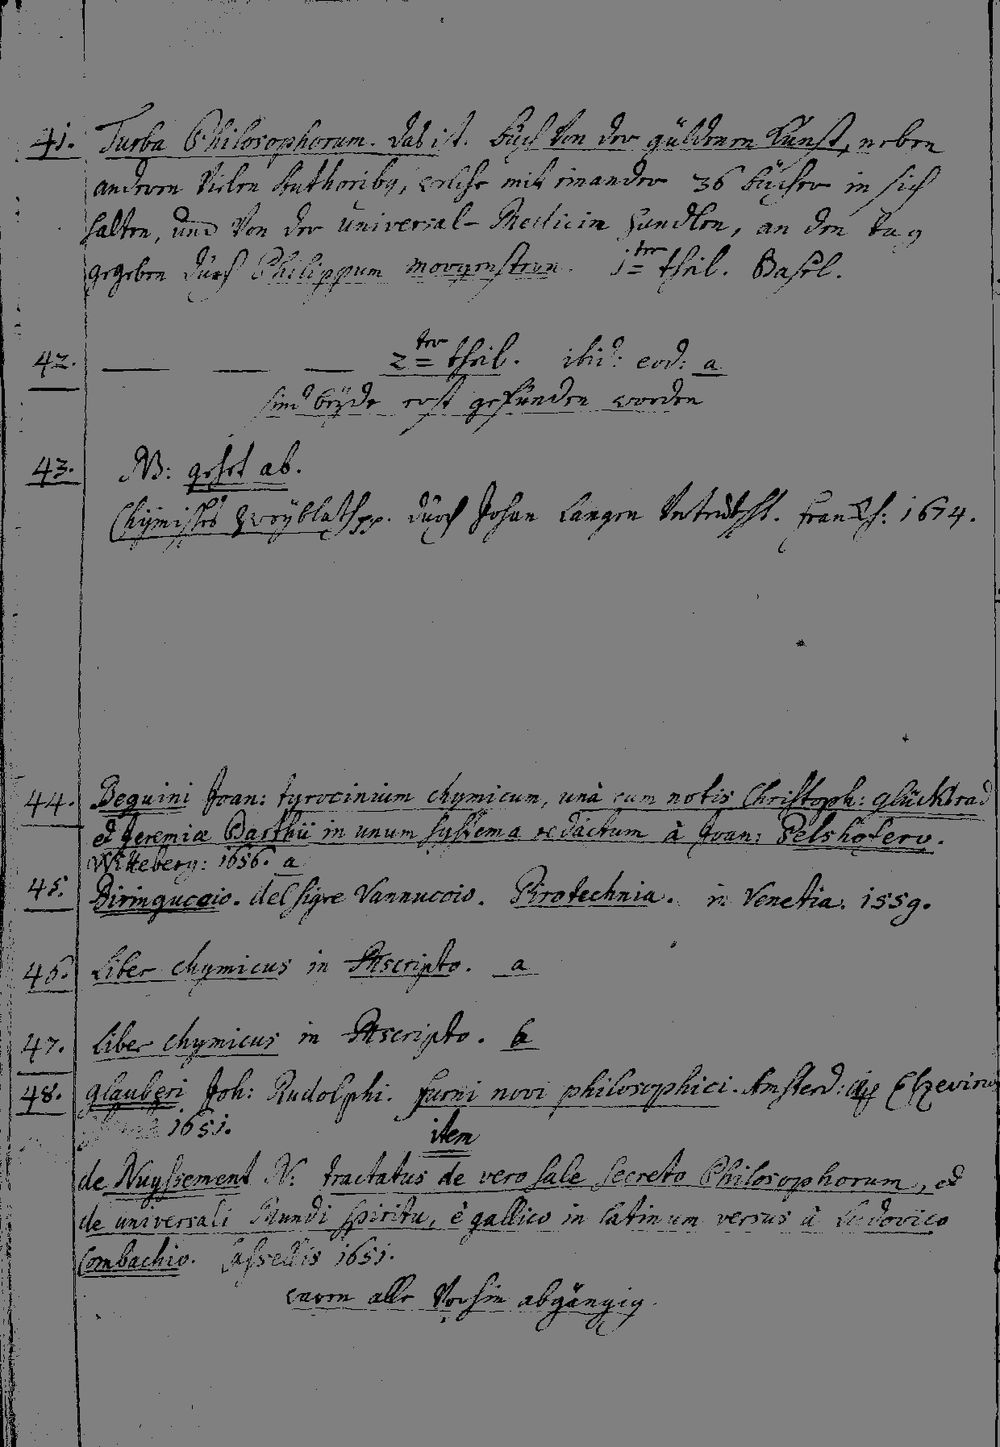 41. Turba Philosophorum. das ist. Buch von der güldenen Kunst, neben
anderen vilen Authoribg, welche mit einander 36 bücher in sich
halten, und von der universal-Medicin handlen, an den tag
gegeben durch Philippum morgenstern. 1ter theil. Basel.
42. 2ter theil. ibid: eod: a
sind beÿde erst gefunden worden
43. NB: gehet ab.
Chÿmisches Zweÿblath pp. durch Johan Langen Franckf: 1674.
44. Beguini Joan: tyrocinium chymicum, unà cum notis Christoph: Glückhrad
et Jeremiæ Barthii in unum systema redactum à Joan: Pelshofero.
Witteberg: 1656. a
45. Biringuccio. del sigre Vannuccio. Pirotechnia. in Venetia. 1559.
46. Liber chymicus in Mscripto. a
47. Liber chymicus in Mscripto. b
48. Glauberi Joh: Rudolphi. furni novi philosophici. Amsterd: Elzevirium
1651. item
de Nuyssement N: tractatus de vero sale secreto Philosophorum, et
de universali Mundi spiritu, è gallico in latinum versus à Ludovico
Combachio. Cassellis 1651.
waren alle vorhin abgängig.